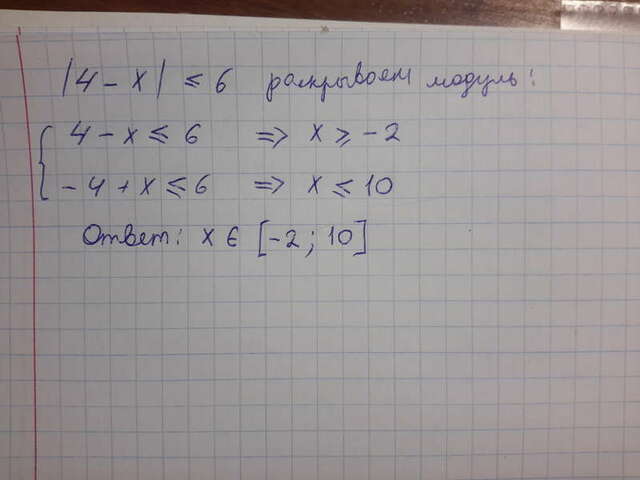 |4 - x| ≤ 6 раскрываем модуль:
4 - x ≤ 6 => x ≥ -2
-4 + x ≤ 6 => x ≤ 10
Ответ: x ∈ [-2; 10]